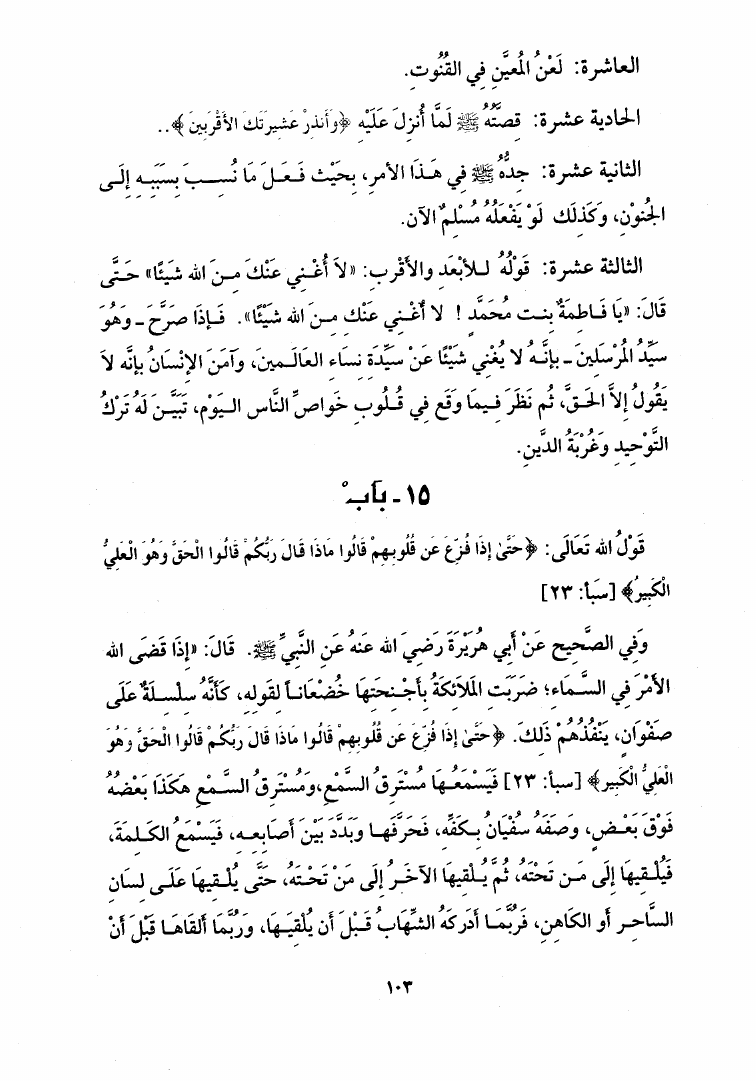 العاشرة: لَعْنُ المُعيَّنِ فِي القُنُوتِ.
الحادية عشرة: قِصَّتُهُ ﷺ لَمَّا أُنزِلَ عَلَيْهِ ﴿وَأَنذِرْ عَشِيرَتَكَ الأَقْرَبِينَ﴾..
الثانية عشرة: جِدُّهُ ﷺ فِي هَذَا الأمرِ، بحَيْث فَعَلَ مَا نُسِبَ بِسَبَبِهِ إِلَى
الجُنُوْنِ، وَكَذَلِكَ لَوْ يَفْعَلُهُ مُسْلِمٌ الآن.
الثالثة عشرة: قَوْلُهُ للأبْعَدِ والأقْرب: «لاَ أُغْنِي عَنْكَ مِنَ الله شَيئًا» حَتَّى
قَالَ: «يَا فَاطِمَةُ بنت مُحَمَّدٍ ! لا أغْنِي عَنْكِ مِنَ الله شَيْئًا». فَإِذَا صَرَّحَ ـ وَهُوَ
سيِّدُ المُرْسَلِينَ ـ بإنَّهُ لا يُغْنِي شَيْئًا عَنْ سيِّدَةِ نِسَاءِ العَالَمينَ، وَآمَنَ الإِنْسَانُ بإنَّه لاَ
يَقُولُ إلاَّ الحَقَّ، ثُم نَظَرَ فِيمَا وَقَع فِي قُلُوبِ خَواصِّ النَّاس اليَوْم، تَبَيَّنَ لَهُ تَرْكُ
التَّوْحِيدِ وَغُرْبَةُ الدِّينِ.
١٥ ـ بَابٌ
قَوْلُ الله تَعَالَى: ﴿حَتَّىٰ إِذَا فُزِّعَ عَن قُلُوبِهِمْ قَالُوا مَاذَا قَالَ رَبُّكُمْ قَالُوا الْحَقَّ وَهُوَ الْعَلِيُّ
الْكَبِيرُ﴾ [سَبأ: ٢٣]
وَفِي الصَّحيحِ عَنْ أبي هُرَيْرَةَ رَضِيَ الله عَنهُ عَنِ النَّبيِّ ﷺ. قَالَ: «إِذَا قَضَى الله
الأمْرَ فِي السَّمَاءِ؛ ضَرَبَت المَلاَئِكَةُ بأجْنِحَتِهَا خُضْعَانـاً لِقَولِهِ، كَأنَّهُ سِلْسِلَةٌ عَلَى
صَفْوَانٍ، يَنْفُذُهُمْ ذَلِكَ. ﴿حَتَّىٰ إِذَا فُزِّعَ عَن قُلُوبِهِمْ قَالُوا مَاذَا قَالَ رَبُّكُمْ قَالُوا الْحَقَّ وَهُوَ
الْعَلِيُّ الْكَبِيرُ﴾ [سبأ: ٢٣] فَيَسْمَعُهَا مُسْتَرِقُ السَّمْعِ، وَمُسْتَرِقُ السَّمْعِ هَكَذَا بَعْضُهُ
فَوْقَ بَعْضٍ، وَصَفَهُ سُفْيَانُ بِكَفِّهِ، فَحَرَّفَهَا وَبَدَّدَ بَيْنَ أَصَابِعِهِ، فَيَسْمَعُ الكَلِمَةَ،
فَيُلْقِيهَا إِلَى مَن تَحْتَهُ، ثُمَّ يُلْقِيهَا الآخَرُ إِلَى مَنْ تَحْتَهُ، حَتَّى يُلْقِيهَا عَلَى لِسَانِ
السَّاحِرِ أَوِ الكَاهِنِ، فَرُبَّمَا أَدركَهُ الشِّهَابُ قَبْلَ أَن يُلْقِيَهَا، وَرُبَّمَا ألقَاهَا قَبْلَ أَنْ
١٠٣